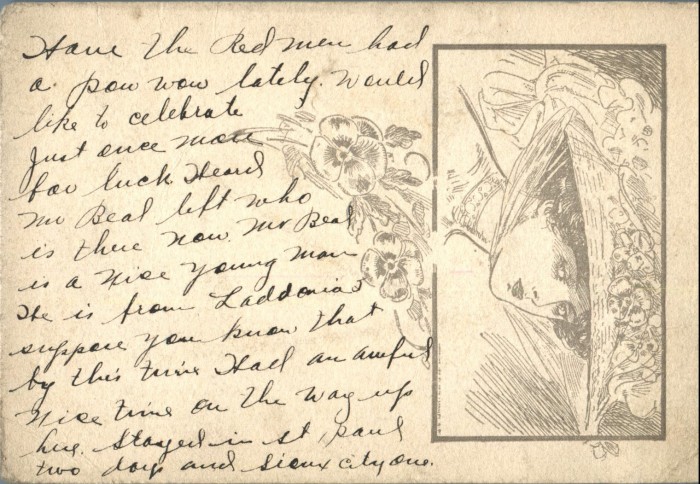 Have the Red men had
a pow wow lately. Would
like to celebrate
just once more
for luck Heard
Mr Beal left who
is there now. Mr Beal
is a nice young man
He is from Laddonia
suppose you know that
by this time Had an awful
nice time on the way up
here. Stayed in St, Paul
two days and Sioux city one.